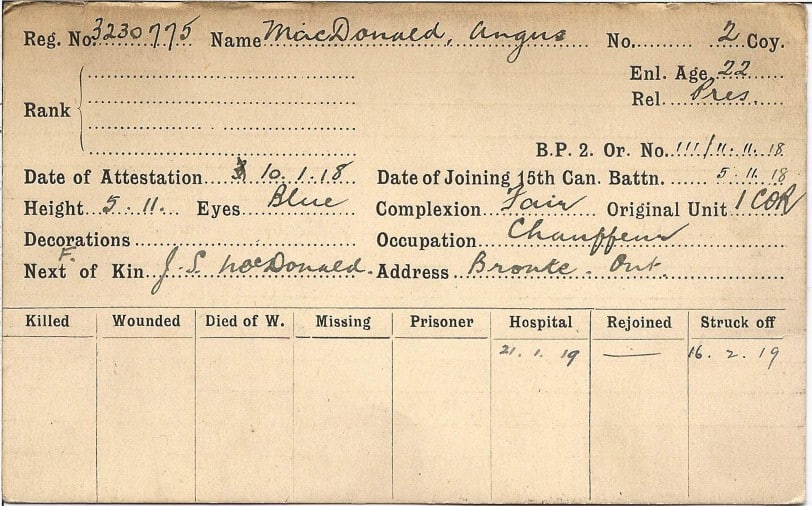 Reg. No. 3230775 Name MacDonald, Angus No. 2 Coy.
Enl. Age 22
Rel. Pres.
Rank
B.P. 2. Or. No. 111/11.11.18
Date of Attestation 10.1.18 Date of Joining 15th Can. Battn. 5.11.18
Height 5.11. Eyes Blue Complexion Fair Original Unit 1 COR
Decorations Occupation Chauffeur
F.
Next of Kin J. S. MacDonald. Address Bronte. Ont.
Killed Wounded Died of W. Missing Prisoner Hospital Rejoined Struck off
21.1.19 — 16.2.19